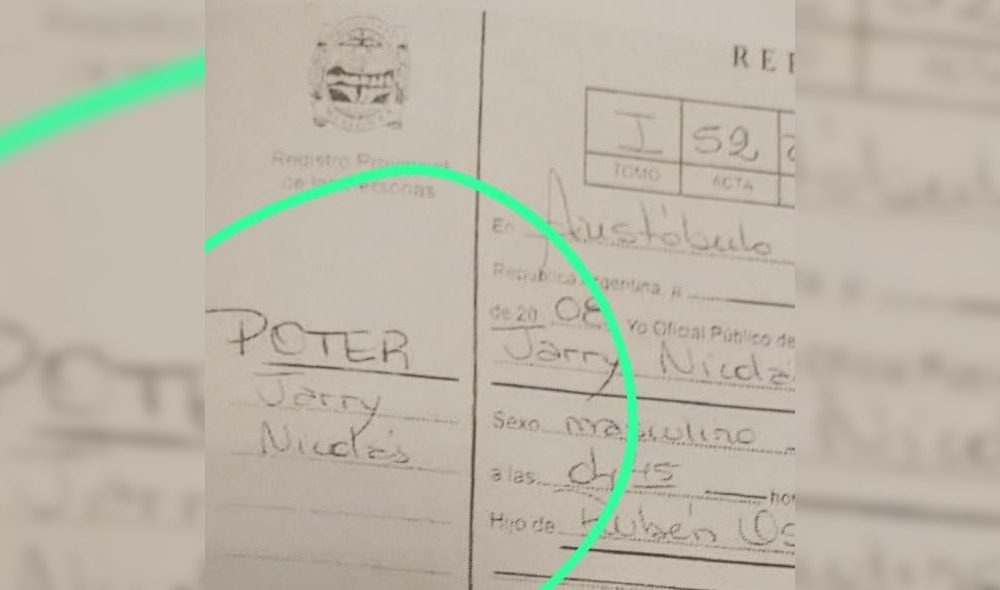 Registro Provincial
de las Personas
POTER
Jarry
Nicolás
RE
I 52
TOMO ACTA
En Aristóbulo
República Argentina, a
de 20 08 Yo Oficial Público de
Jarry Nicolá
Sexo masculino
a las 04,15 ho
Hijo de Rubén Os